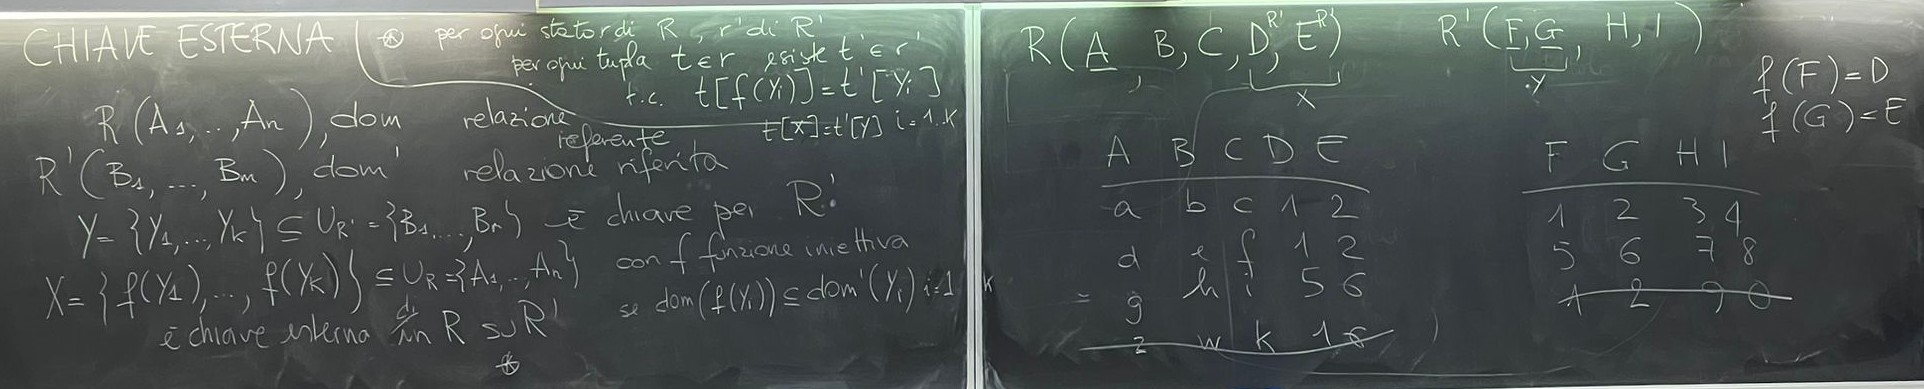 CHIAVE ESTERNA
⊛ per ogni stato r di R, r' di R'
per ogni tupla t ∈ r esiste t' ∈ r'
t.c. t[f(Yi)] = t'[Yi]
t[X] = t'[Y] i = 1..k
R(A1, .., An), dom relazione referente
R'(B1, ..., Bm), dom' relazione riferita
Y = {Y1, ..., Yk} ⊆ UR' = {B1, ..., Bn} è chiave per R'
X = {f(Y1), ..., f(Yk)} ⊆ UR = {A1, .., An} con f funzione iniettiva
è chiave esterna di in R su R' se dom(f(Yi)) ⊆ dom'(Yi) i=1 k
⊛
R(A, B, C, D^R', E^R')
X
A B C D E
a b c 1 2
d e f 1 2
g h i 5 6
z w k 1 8
R'(F, G, H, I)
Y
f(F) = D
f(G) = E
F G H I
1 2 3 4
5 6 7 8
1 2 9 0